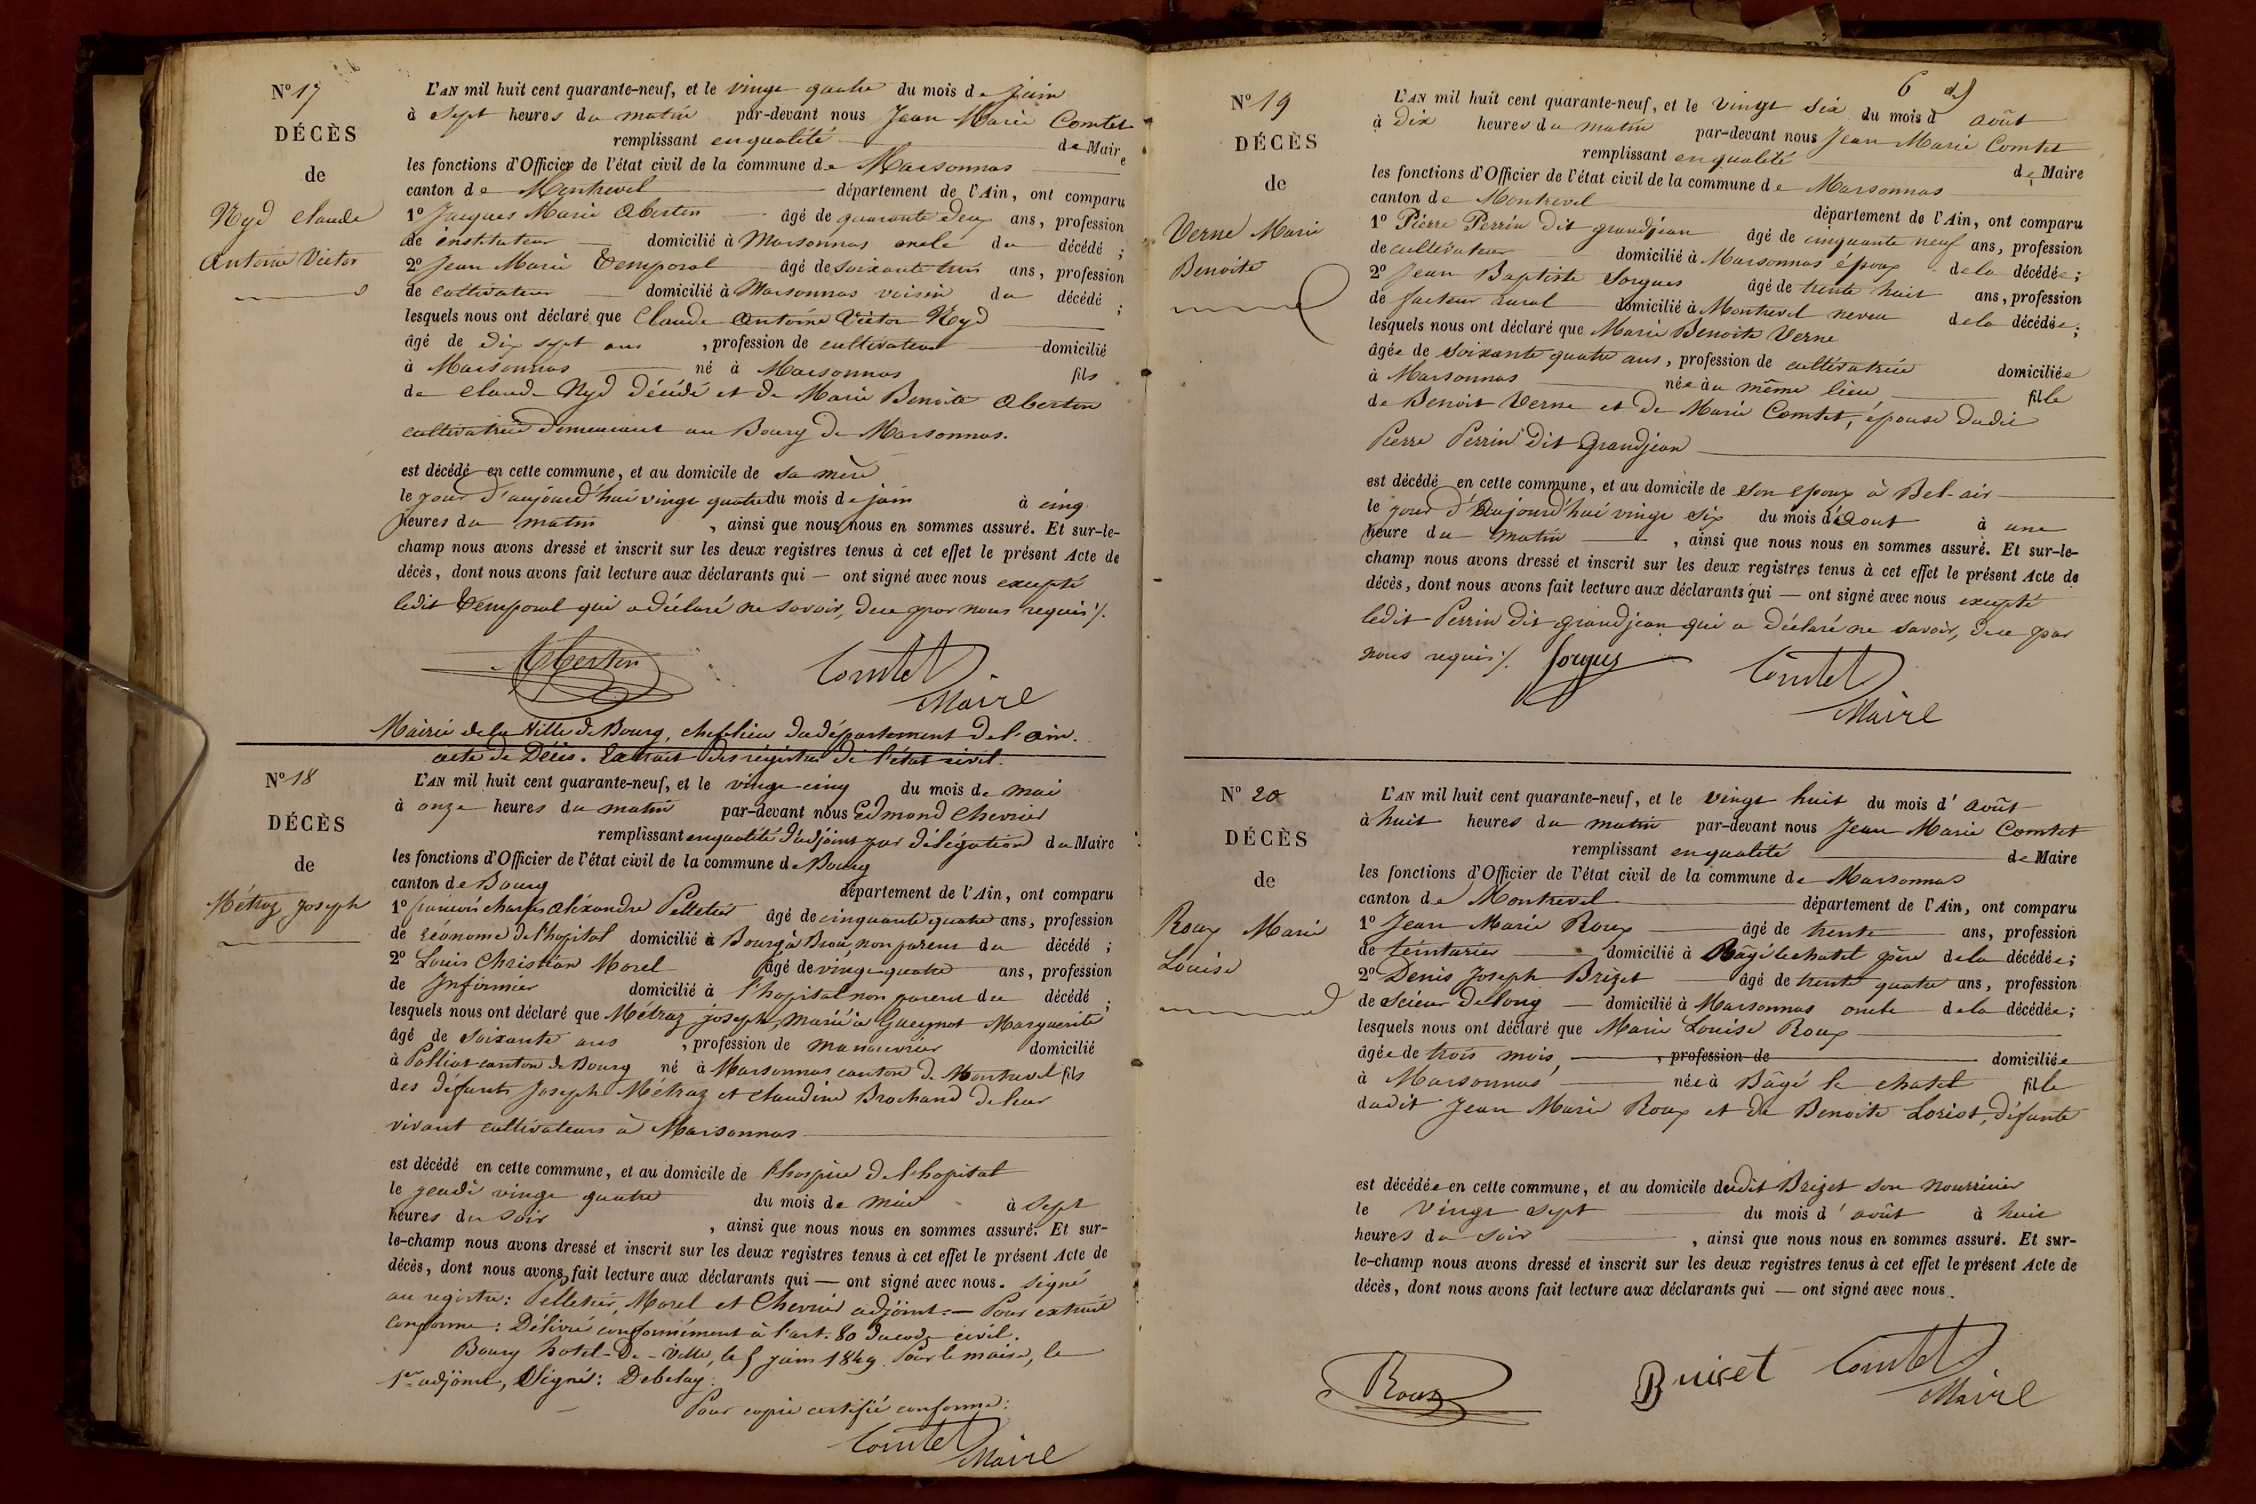 N° 17
DÉCÈS
de
Nyd Claude
Antoine Victor
L'AN mil huit cent quarante-neuf, et le vingt quatre du mois de juin
à sept heures du matin par-devant nous Jean Marie Comtet
remplissant en qualité de Maire
les fonctions d'Officier de l'état civil de la commune de Marsonnas
canton de Montrevel département de l'Ain, ont comparu
1° Jacques Marie Oberton âgé de quarante deux ans, profession
de instituteur domicilié à Marsonnas oncle du décédé ;
2° Jean Marie Temporal âgé de soixante trois ans, profession
de cultivateur domicilié à Marsonnas voisin du décédé ;
lesquels nous ont déclaré que Claude Antoine Victor Nyd
âgé de dix sept ans , profession de cultivateur domicilié
à Marsonnas né à Marsonnas fils
de Claude Nyd décédé et de Marie Benoite Oberton
cultivatrice demeurant au Bourg de Marsonnas.
est décédé en cette commune, et au domicile de sa mère
le jour d'aujourd'hui vingt quatre du mois de juin à cinq
heures du matin , ainsi que nous nous en sommes assuré. Et sur-le-
champ nous avons dressé et inscrit sur les deux registres tenus à cet effet le présent Acte de
décès, dont nous avons fait lecture aux déclarants qui — ont signé avec nous excepté
ledit Temporal qui a déclaré ne savoir, de ce par nous requis ./.
Oberton Comtet
Maire
Mairie de la Ville de Bourg, chef lieu du département de l'ain.
acte de Décès. Extrait des régistres de l'état civil.
N° 18
DÉCÈS
de
Métraz Joseph
L'AN mil huit cent quarante-neuf, et le vingt-cinq du mois de mai
à onze heures du matin par-devant nous Edmond Chevrier
remplissant en qualité d'adjoint par délégation du Maire
les fonctions d'Officier de l'état civil de la commune de Bourg
canton de Bourg département de l'Ain, ont comparu
1° françois charles alexandre Pelletier âgé de cinquante quatre ans, profession
de économe de l'hopital domicilié à Bourg à Brou, non parent du décédé ;
2° Louis Christian Morel âgé de vingt quatre ans, profession
de Infirmier domicilié à l'hopital non parent du décédé ;
lesquels nous ont déclaré que Métraz joseph, marié à Gueynot Marguerite
âgé de soixante ans , profession de manouvrier domicilié
à Polliat canton de Bourg né à Marsonnas canton de Montrevel fils
des défunts Joseph Métraz et Claudine Brochand de leur
vivant cultivateurs à Marsonnas
est décédé en cette commune, et au domicile de l'hospice de l'hopital
le jeudi vingt quatre du mois de mai à sept
heures du soir , ainsi que nous nous en sommes assuré. Et sur-
le-champ nous avons dressé et inscrit sur les deux registres tenus à cet effet le présent Acte de
décès, dont nous avons fait lecture aux déclarants qui — ont signé avec nous. signé
au registre : Pelletier, Morel et Chevrier adjoint. — Pour extrait
conforme : Délivré conformément à l'art. 80 du code civil.
Bourg hotel-de-ville, le 5 juin 1849. Pour le maire, le
1er adjoint, Signé : Debelay.
Pour copie certifié conforme :
Comtet
Maire
6
N° 19
DÉCÈS
de
Verne Marie
Benoite
L'AN mil huit cent quarante-neuf, et le vingt six du mois d août
à dix heures du matin par-devant nous Jean Marie Comtet
remplissant en qualité de Maire
les fonctions d'Officier de l'état civil de la commune de Marsonnas
canton de Montrevel département de l'Ain, ont comparu
1° Pierre Perrin dit grandjean âgé de cinquante neuf ans, profession
de cultivateur domicilié à Marsonnas époux de la décédée ;
2° Jean Baptiste Sorgues âgé de trente huit ans, profession
de facteur rural domicilié à Montrevel neveu de la décédée ;
lesquels nous ont déclaré que Marie Benoite Verne
âgée de soixante quatre ans, profession de cultivatrice domiciliée
à Marsonnas née au même lieu, fille
de Benoit Verne et de Marie Comtet, épouse dudit
Pierre Perrin dit Grandjean
est décédé en cette commune, et au domicile de son epoux à Bel-air
le jour d'aujourd'hui vingt six du mois d'aout à une
heure du matin , ainsi que nous nous en sommes assuré. Et sur-le-
champ nous avons dressé et inscrit sur les deux registres tenus à cet effet le présent Acte de
décès, dont nous avons fait lecture aux déclarants qui — ont signé avec nous excepté
ledit Perrin dit grandjean qui a déclaré ne savoir, de ce par
nous requis ./. Sorgues Comtet
Maire
N° 20
DÉCÈS
de
Roux Marie
Louise
L'AN mil huit cent quarante-neuf, et le vingt huit du mois d' août
à huit heures du matin par-devant nous Jean Marie Comtet
remplissant en qualité de Maire
les fonctions d'Officier de l'état civil de la commune de Marsonnas
canton de Montrevel département de l'Ain, ont comparu
1° Jean Marie Roux âgé de trente ans, profession
de teinturier domicilié à Bâgé le chatel père de la décédée ;
2° Denis Joseph Brizet âgé de trente quatre ans, profession
de scieur de long domicilié à Marsonnas oncle de la décédée ;
lesquels nous ont déclaré que Marie Louise Roux
âgée de trois mois, , profession de domiciliée
à Marsonnas née à Bâgé le chatel fille
dudit Jean Marie Roux et de Benoite Loriot, défunte
est décédée en cette commune, et au domicile dudit Brizet son nourricier
le vingt sept du mois d' août à huit
heures du soir , ainsi que nous nous en sommes assuré. Et sur-
le-champ nous avons dressé et inscrit sur les deux registres tenus à cet effet le présent Acte de
décès, dont nous avons fait lecture aux déclarants qui — ont signé avec nous.
Roux Bricet Comtet
Maire